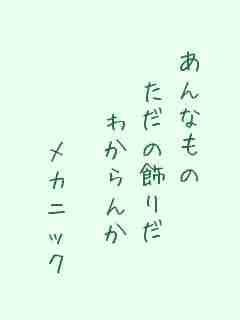 あんなもの
ただの飾りだ
わからんか
メカニック